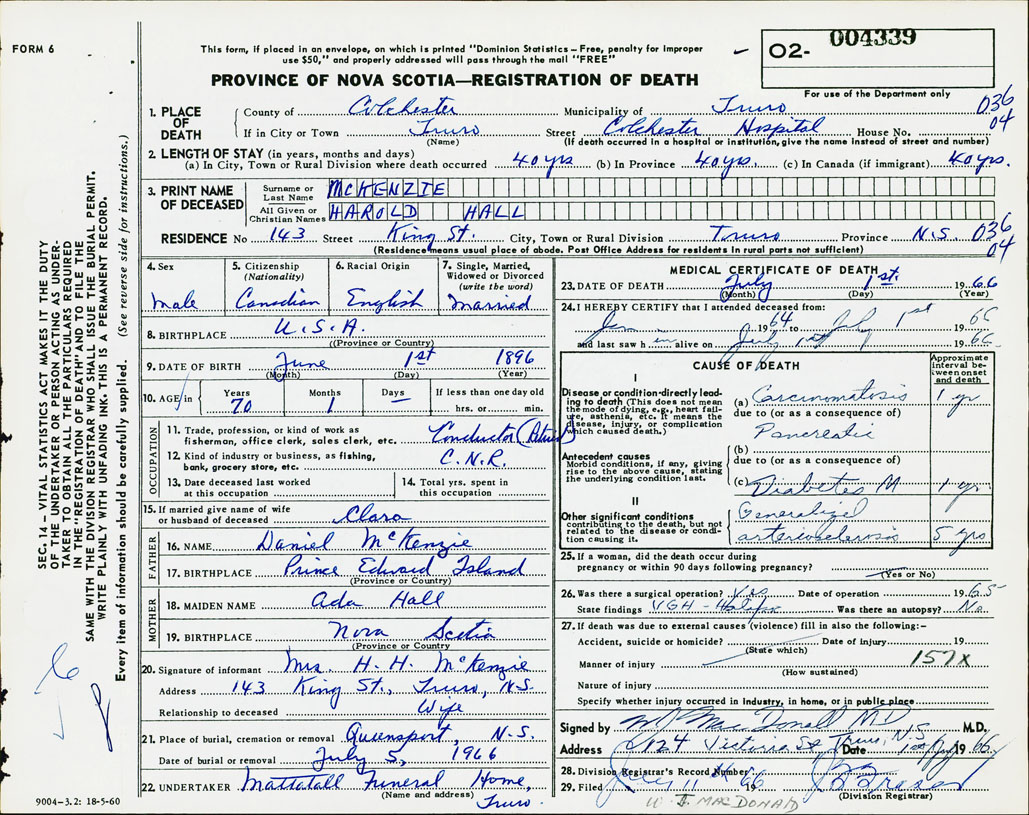 FORM 6
This form, if placed in an envelope, on which is printed "Dominion Statistics – Free, penalty for improper
use $50," and properly addressed will pass through the mail "FREE"
PROVINCE OF NOVA SCOTIA—REGISTRATION OF DEATH
O2- 004339
For use of the Department only
SEC. 14 – VITAL STATISTICS ACT MAKES IT THE DUTY
OF THE UNDERTAKER OR PERSON ACTING AS UNDER-
TAKER TO OBTAIN ALL THE PARTICULARS REQUIRED
IN THE "REGISTRATION OF DEATH" AND TO FILE THE
SAME WITH THE DIVISION REGISTRAR WHO SHALL ISSUE THE BURIAL PERMIT.
WRITE PLAINLY WITH UNFADING INK. THIS IS A PERMANENT RECORD.
Every item of information should be carefully supplied. (See reverse side for instructions.)
1. PLACE OF DEATH
County of Colchester Municipality of Truro 036
If in City or Town Truro Street Colchester Hospital House No. 04
(Name) (If death occurred in a hospital or institution, give the name instead of street and number)
2. LENGTH OF STAY (in years, months and days)
(a) In City, Town or Rural Division where death occurred 40 yrs (b) In Province 40 yrs. (c) In Canada (if immigrant) 40 yrs.
3. PRINT NAME OF DECEASED
Surname or Last Name MCKENZIE
All Given or Christian Names HAROLD HALL
RESIDENCE No 143 Street King St. City, Town or Rural Division Truro Province N.S. 036
(Residence means usual place of abode. Post Office Address for residents in rural parts not sufficient) 04
4. Sex Male
5. Citizenship (Nationality) Canadian
6. Racial Origin English
7. Single, Married, Widowed or Divorced (write the word) Married
8. BIRTHPLACE U.S.A.
(Province or Country)
9. DATE OF BIRTH June 1st 1896
(Month) (Day) (Year)
10. AGE in Years 70 Months 1 Days – If less than one day old hrs. or min.
OCCUPATION
11. Trade, profession, or kind of work as
fisherman, office clerk, sales clerk, etc. Conductor
12. Kind of industry or business, as fishing,
bank, grocery store, etc. C.N.R.
13. Date deceased last worked
at this occupation
14. Total yrs. spent in
this occupation
15. If married give name of wife
or husband of deceased Clara
FATHER
16. NAME Daniel McKenzie
17. BIRTHPLACE Prince Edward Island
(Province or Country)
MOTHER
18. MAIDEN NAME Ada Hall
19. BIRTHPLACE Nova Scotia
(Province or Country)
20. Signature of informant Mrs. H. H. McKenzie
Address 143 King St., Truro, N.S.
Relationship to deceased Wife
21. Place of burial, cremation or removal Queensport, N.S.
Date of burial or removal July 5, 1966
22. UNDERTAKER Mattatall Funeral Home,
(Name and address) Truro.
9004-3.2: 18-5-60
MEDICAL CERTIFICATE OF DEATH
23. DATE OF DEATH July 1st. 1966
(Month) (Day) (Year)
24. I HEREBY CERTIFY that I attended deceased from:
Jan 1964 to July 1st 19
and last saw h im alive on July 1st 1966
CAUSE OF DEATH
Approximate interval between onset and death
I
Disease or condition directly lead-
ing to death (This does not mean
the mode of dying, e.g., heart fail-
ure, asthenia, etc. It means the
disease, injury, or complication
which caused death.)
(a) Carcinomatosis 1 yr
due to (or as a consequence of)
Pancreatic
Antecedent causes
Morbid conditions, if any, giving
rise to the above cause, stating
the underlying condition last.
(b)
due to (or as a consequence of)
(c) Diabetes M 1 yr
II
Other significant conditions
contributing to the death, but not
related to the disease or condi-
tion causing it.
Generalized
arteriosclerosis 5 yrs
25. If a woman, did the death occur during
pregnancy or within 90 days following pregnancy?
(Yes or No)
26. Was there a surgical operation? Yes Date of operation 1965
State findings VGH - Halifax Was there an autopsy? No
27. If death was due to external causes (violence) fill in also the following:-
Accident, suicide or homicide? Date of injury 19
(State which)
Manner of injury 157X
(How sustained)
Nature of injury
Specify whether injury occurred in Industry, in home, or in public place
Signed by MacDonald M.D. M.D.
Address Victoria St Truro, N.S. Date 1st July 1966
28. Division Registrar's Record Number
29. Filed July 11 1966
(Division Registrar)
MACDONALD